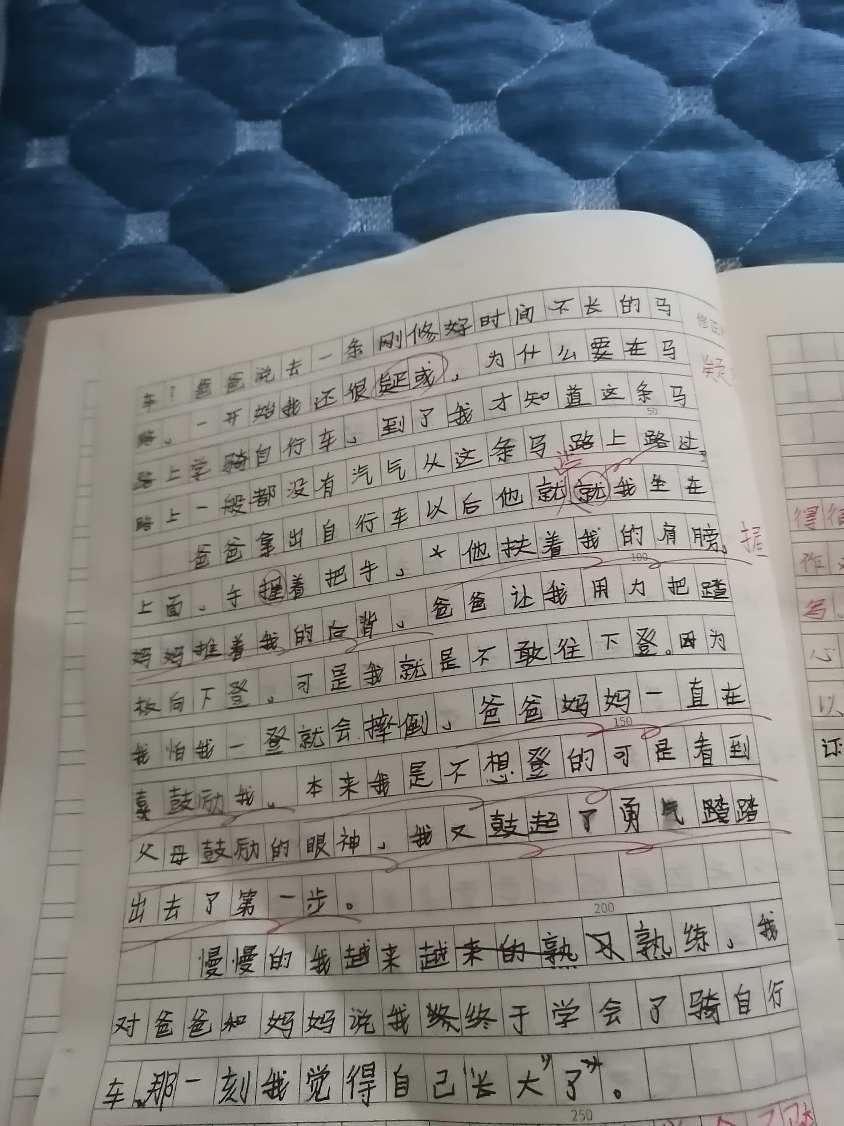 车？爸爸说去一条刚修好时间不长的马
路。一开始我还很疑或，为什么要在马
路上学骑自行车，到了我才知道这条马
路上一般都没有汽气从这条马路上路过。
爸爸拿出自行车以后他就就我坐在
上面，手握着把手，他扶着我的肩膀，
妈妈推着我的后背，爸爸让我用力把踏
板向下登，可是我就是不敢往下登。因为
我怕我一登就会摔倒，爸爸妈妈一直在
鼓励我。本来我是不想登的可是看到
父母鼓励的眼神，我又鼓起了勇气踏
出去了第一步。
慢慢的我越来越熟练，我
对爸爸和妈妈说我终于学会了骑自行
车，那一刻我觉得自己"长大"了"。
50
100
150
200
250
得很
作
心
以
还